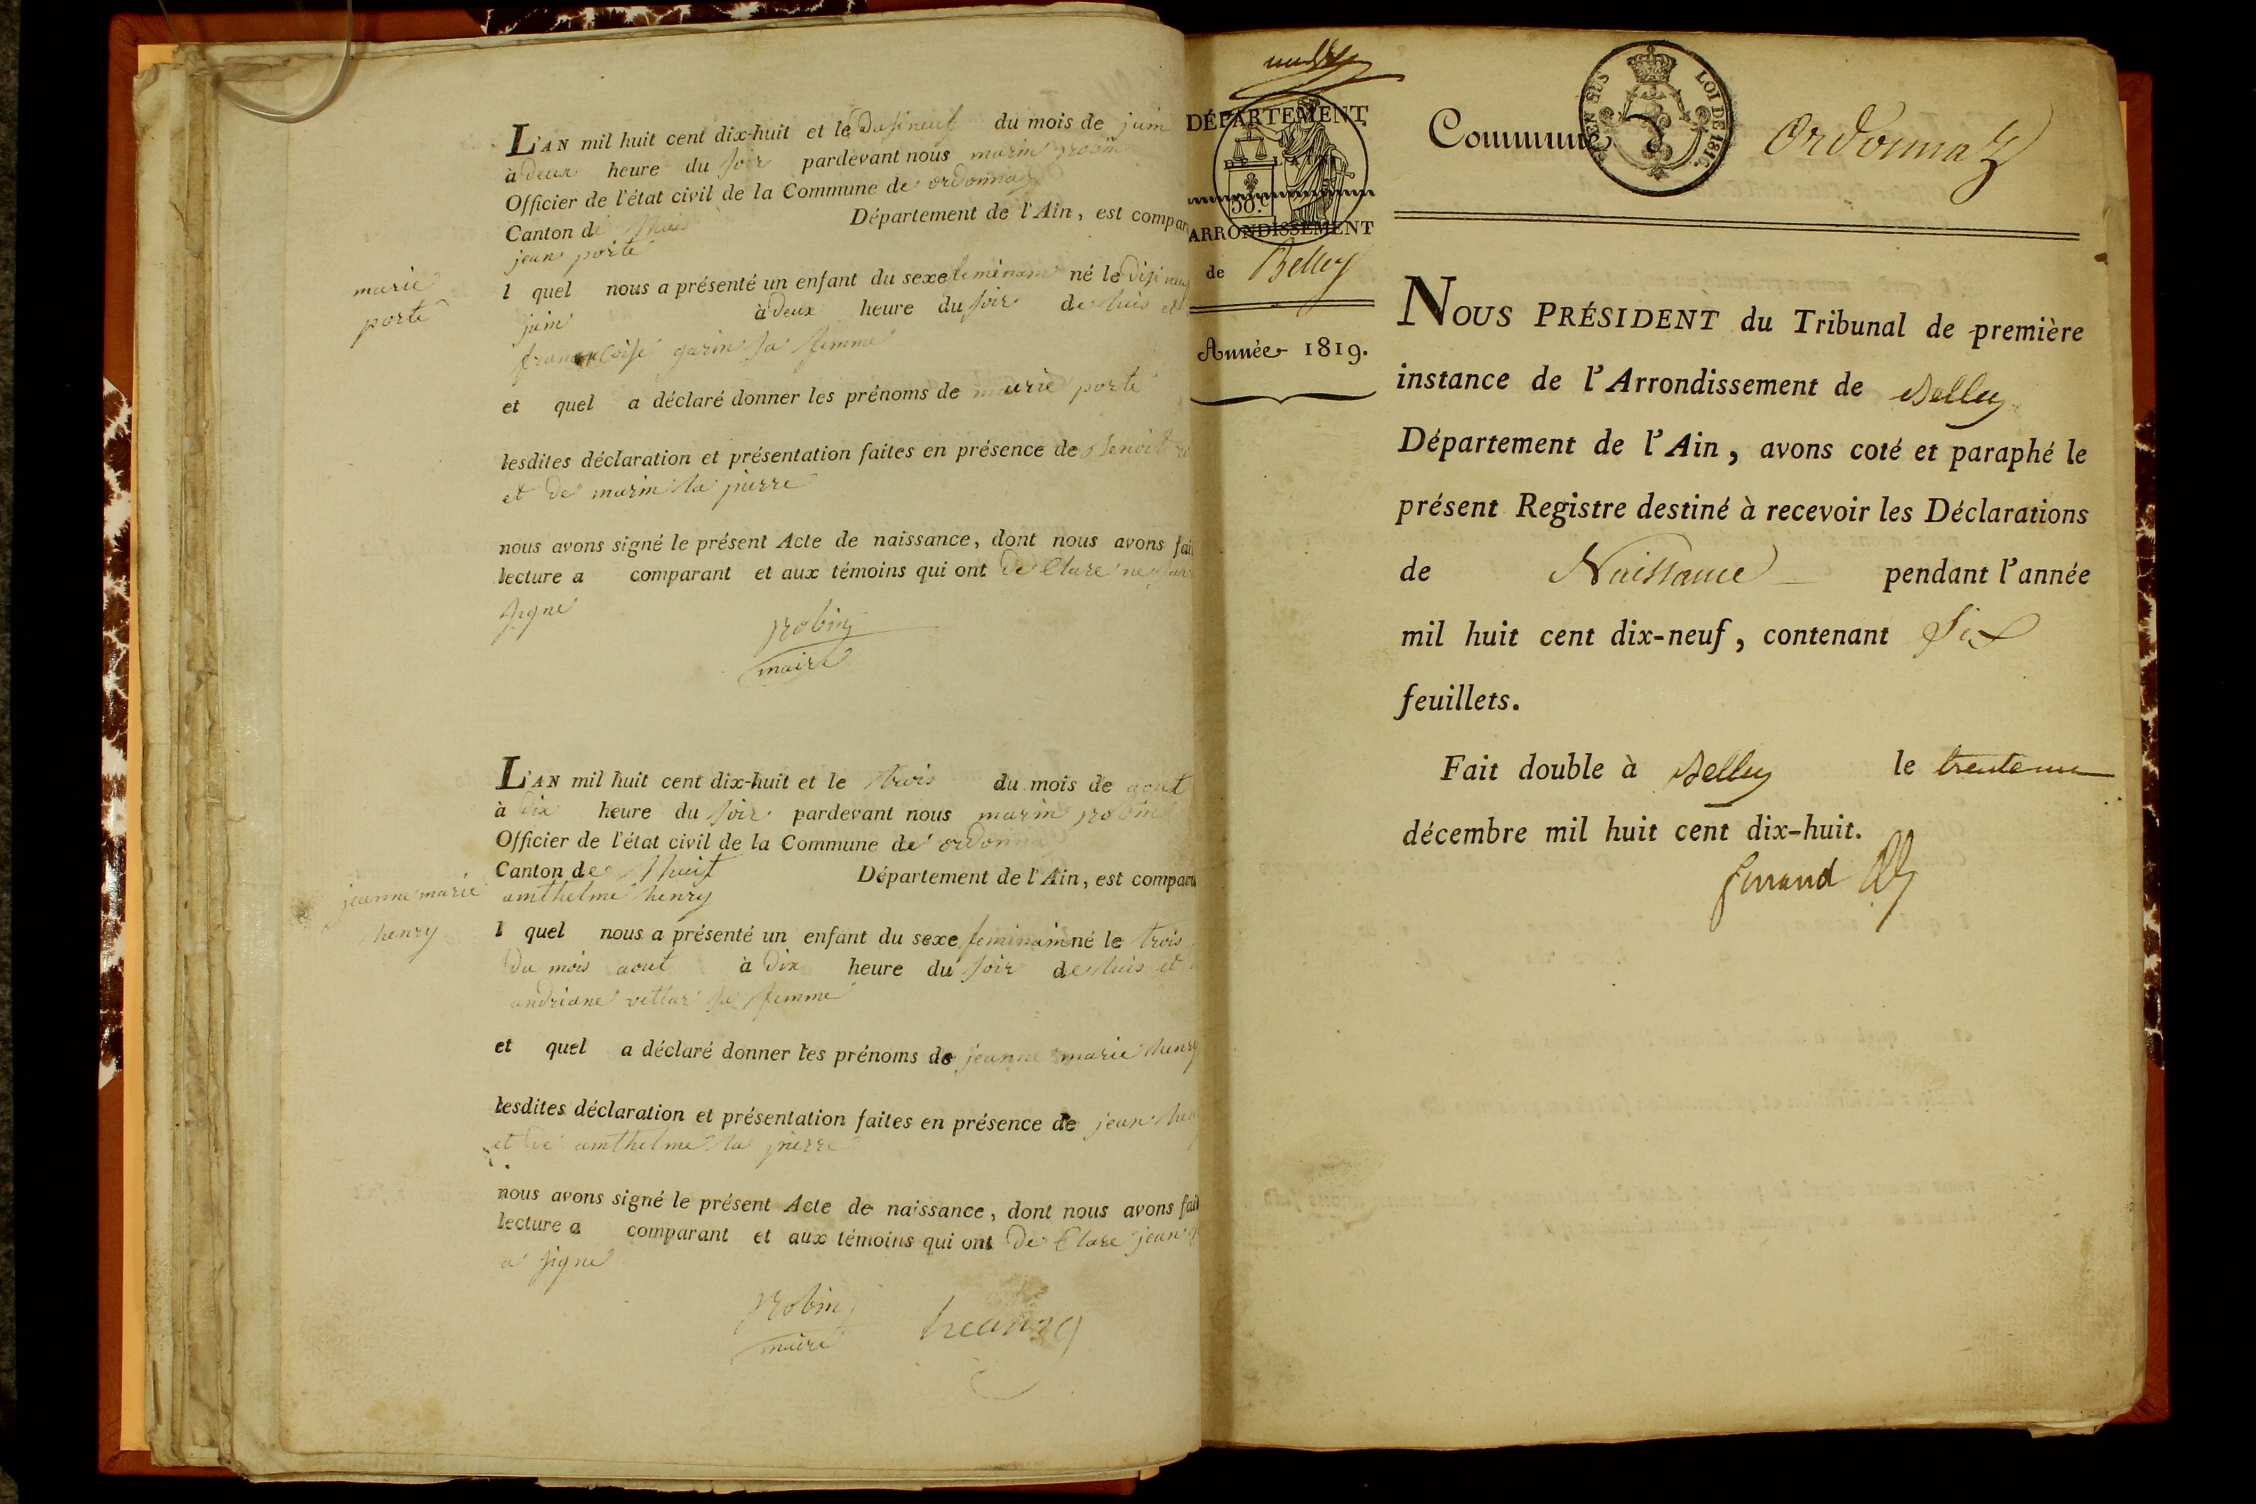 marie
porte
L'AN mil huit cent dix-huit et le disineuf du mois de juin
à deux heure du soir pardevant nous marin robin
Officier de l'état civil de la Commune de ordonnaz
Canton de Département de l'Ain, est compar
jean porte
l quel nous a présenté un enfant du sexe feminain né le
juin à deux heure du soir de luis et
francoise garin sa femme
et quel a déclaré donner les prénoms de marie porte
lesdites déclaration et présentation faites en présence de Benoit
et de marin la pierre
nous avons signé le présent Acte de naissance, dont nous avons fait
lecture a comparant et aux témoins qui ont de Clare ne
signe
robin
maire
jeanne marie
henry
L'AN mil huit cent dix-huit et le trois du mois de aout
à dix heure du soir pardevant nous marin robin
Officier de l'état civil de la Commune de ordonna
Canton de Département de l'Ain, est comparu
amthelme henry
l quel nous a présenté un enfant du sexe feminain né le trois
du mois aout à dix heure du soir de luis et
andriane vettar sa femme
et quel a déclaré donner les prénoms de jeanne marie henry
lesdites déclaration et présentation faites en présence de jean
et de amthelme la pierre
nous avons signé le présent Acte de naissance, dont nous avons fait
lecture a comparant et aux témoins qui ont de Clare jean
a signe
robin
maire
DÉPARTEMENT
50.c
ARRONDISSEMENT
de Belley
Année 1819.
Commune Ordonnaz
LOI DE 1816.
NOUS PRÉSIDENT du Tribunal de première
instance de l'Arrondissement de Belley
Département de l'Ain, avons coté et paraphé le
présent Registre destiné à recevoir les Déclarations
de Naissance pendant l'année
mil huit cent dix-neuf, contenant Six
feuillets.
Fait double à Belley le trente un
décembre mil huit cent dix-huit.